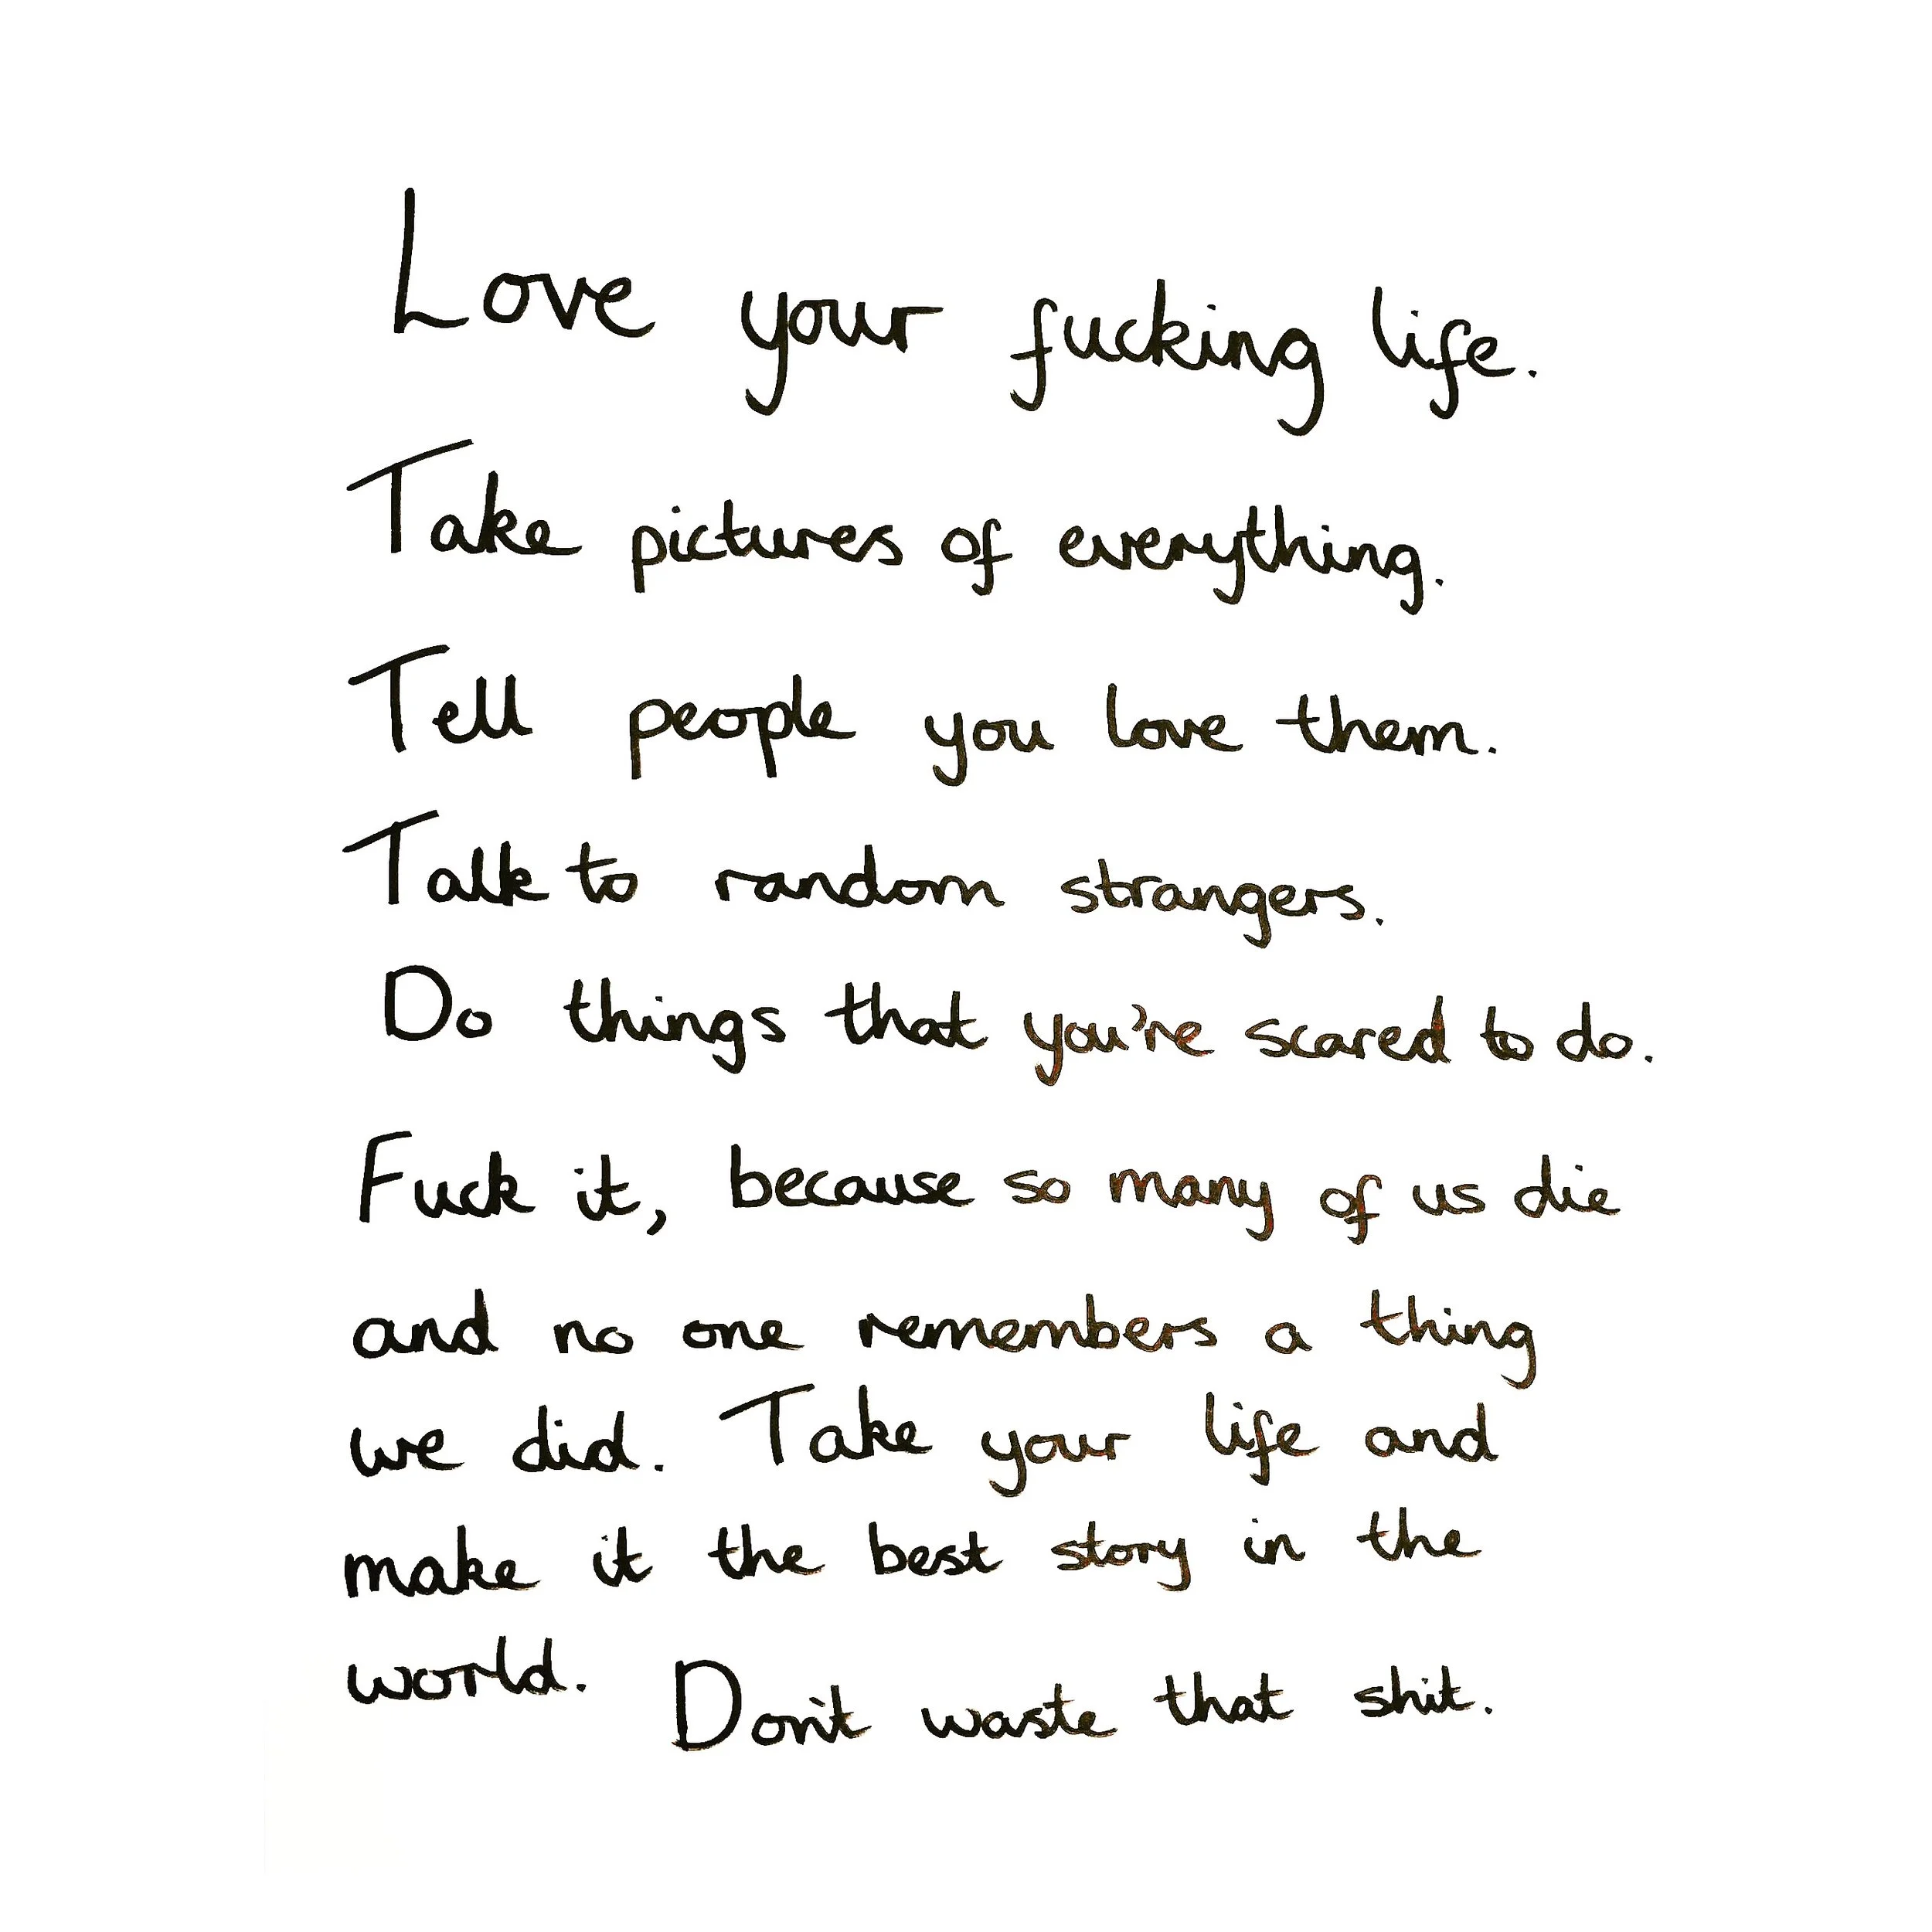 Love your fucking life.
Take pictures of everything.
Tell people you love them.
Talk to random strangers.
Do things that you're scared to do.
Fuck it, because so many of us die
and no one remembers a thing
we did. Take your life and
make it the best story in the
world. Don't waste that shit.